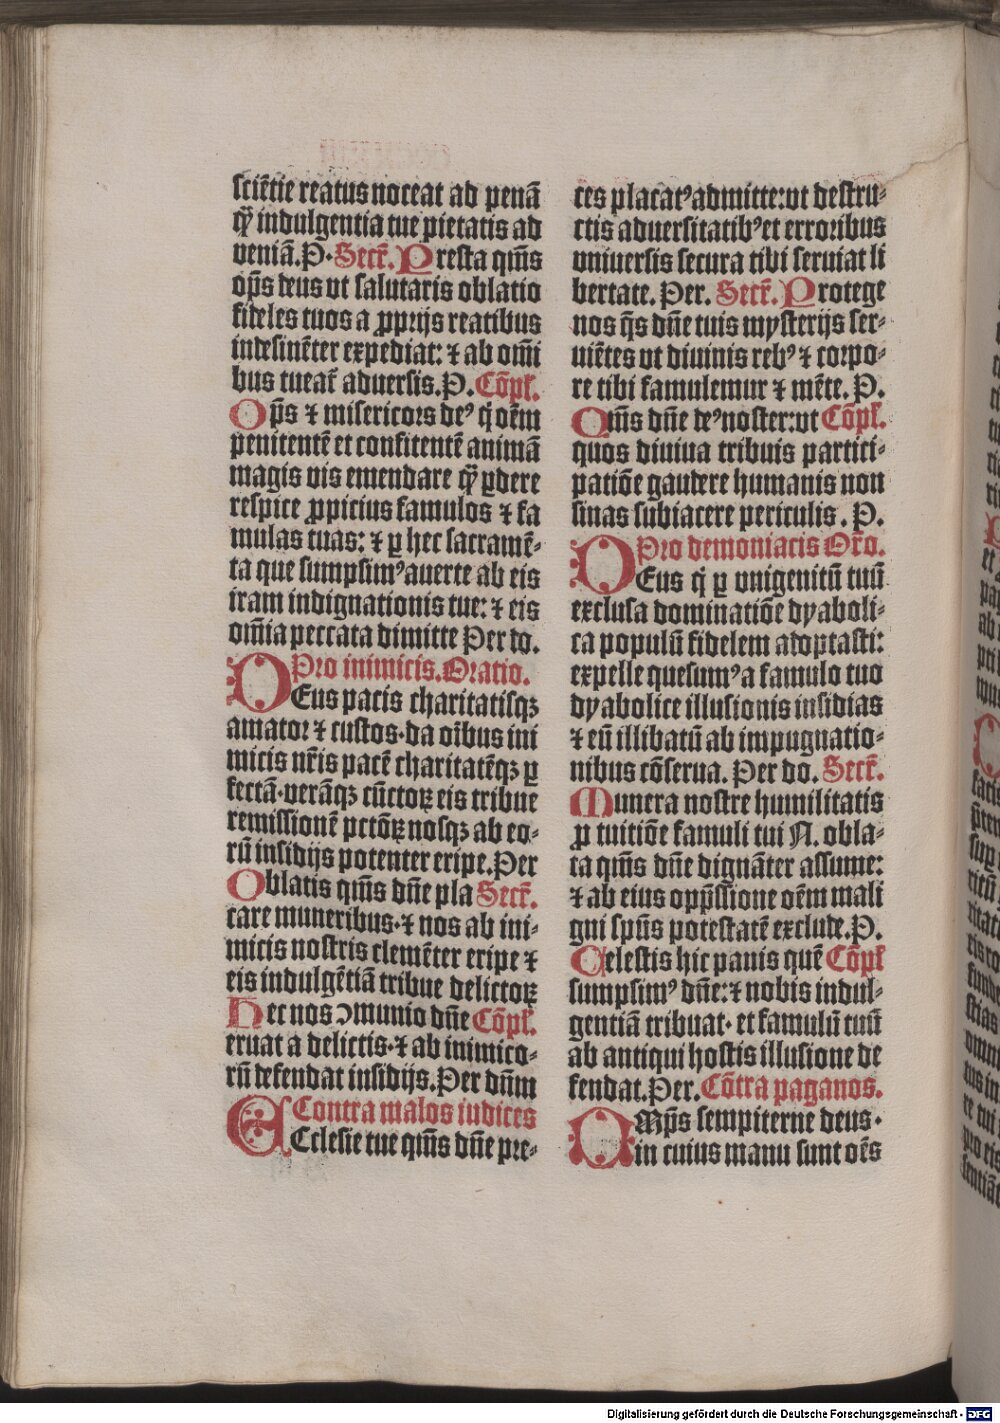 sciētie reatus noceat ad penā
qͫ indulgentia tue pietatis ad
veniā. P. Secr̄. Presta qm̄s
op̄s deus vt salutaris oblatio
fideles tuos a ꝓprijs reatibus
indesinēter expediat: ⁊ ab om̄i
bus tueat᷑ aduersis. P. Cōpl̄.
Op̄s ⁊ misericors deꝰ q̇ oēm
penitentē et confitentē animā
magis vis emendare qͫ ꝑdere
respice ꝓpicius famulos ⁊ fa
mulas tuas: ⁊ ꝑ hec sacramē-
ta que sumpsimꝰ auerte ab eis
iram indignationis tue: ⁊ eis
om̄ia peccata dimitte Per do.
Pro inimicis. Oratio.
DEus pacis charitatisqꝫ
amator ⁊ custos. da oībus ini
micis nr̄is pacē charitatēqꝫ ꝑ
fectā. verāqꝫ cūctoꝝ eis tribue
remissionē pctōꝝ nosqꝫ ab eo-
rū insidijs potenter eripe. Per
Oblatis qm̄s dn̄e pla Secr̄.
care muneribus. ⁊ nos ab ini-
micis nostris clemēter eripe ⁊
eis indulgētiā tribue delictoꝝ
Hec nos ↄmunio dn̄e Cōpl̄.
eruat a delictis. ⁊ ab inimico-
rū defendat insidijs. Per dn̄m
Contra malos iudices
ECclesie tue qm̄s dn̄e pre-
ces placatꝰ admitte: vt destru-
ctis aduersitatibꝰ et erroribus
vniuersis secura tibi seruiat li
bertate. Per. Secr̄. Protege
nos q̄s dn̄e tuis mysterijs ser-
uiētes vt diuinis rebꝰ ⁊ corpo-
re tibi famulemur ⁊ mēte. P.
Qm̄s dn̄e deꝰ noster: vt Cōpl̄.
quos diuiua tribuis partici-
patiōe gaudere humanis non
sinas subiacere periculis. P.
Pro demoniacis Or̄o.
DEus q̇ ꝑ vnigenitū tuū
exclusa dominatiōe dyaboli-
ca populū fidelem adoptasti:
expelle quesumꝰ a famulo tuo
dyabolice illusionis insidias
⁊ eū illibatū ab impugnatio-
nibus cōserua. Per do. Secr̄.
Munera nostre humilitatis
ꝓ tuitiōe famuli tui N. obla-
ta qm̄s dn̄e dignāter assume:
⁊ ab eius opp̄ssione oēm mali
gni sp̄us potestatē exclude. P.
Celestis hic panis quē Cōpl̄
sumpsimꝰ dn̄e: ⁊ nobis indul-
gentiā tribuat. et famulū tuū
ab antiqui hostis illusione de
fendat. Per. Cōtra paganos.
OMp̄s sempiterne deus.
in cuius manu sunt oēs
Digitalisierung gefördert durch die Deutsche Forschungsgemeinschaft - DFG